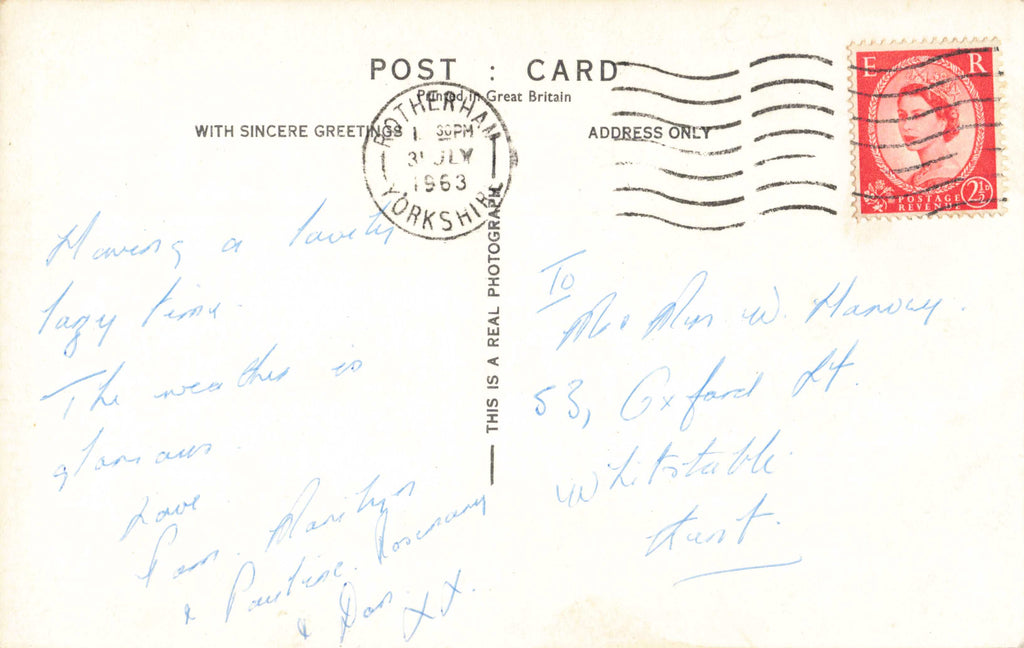 POST : CARD
Printed in Great Britain
WITH SINCERE GREETINGS
ADDRESS ONLY
ROTHERHAM
30PM
31 JLY
1963
YORKSHIRE
E R
POSTAGE
REVENUE
2½D
THIS IS A REAL PHOTOGRAPH
Having a lovely
lazy time.
The weather is
glorious.
Love
Pam. Marilyn
& Pauline. Rosemary
& Don. XX.
To
Mr & Mrs W. Harvey.
53, Oxford St.
Whitstable.
Kent.